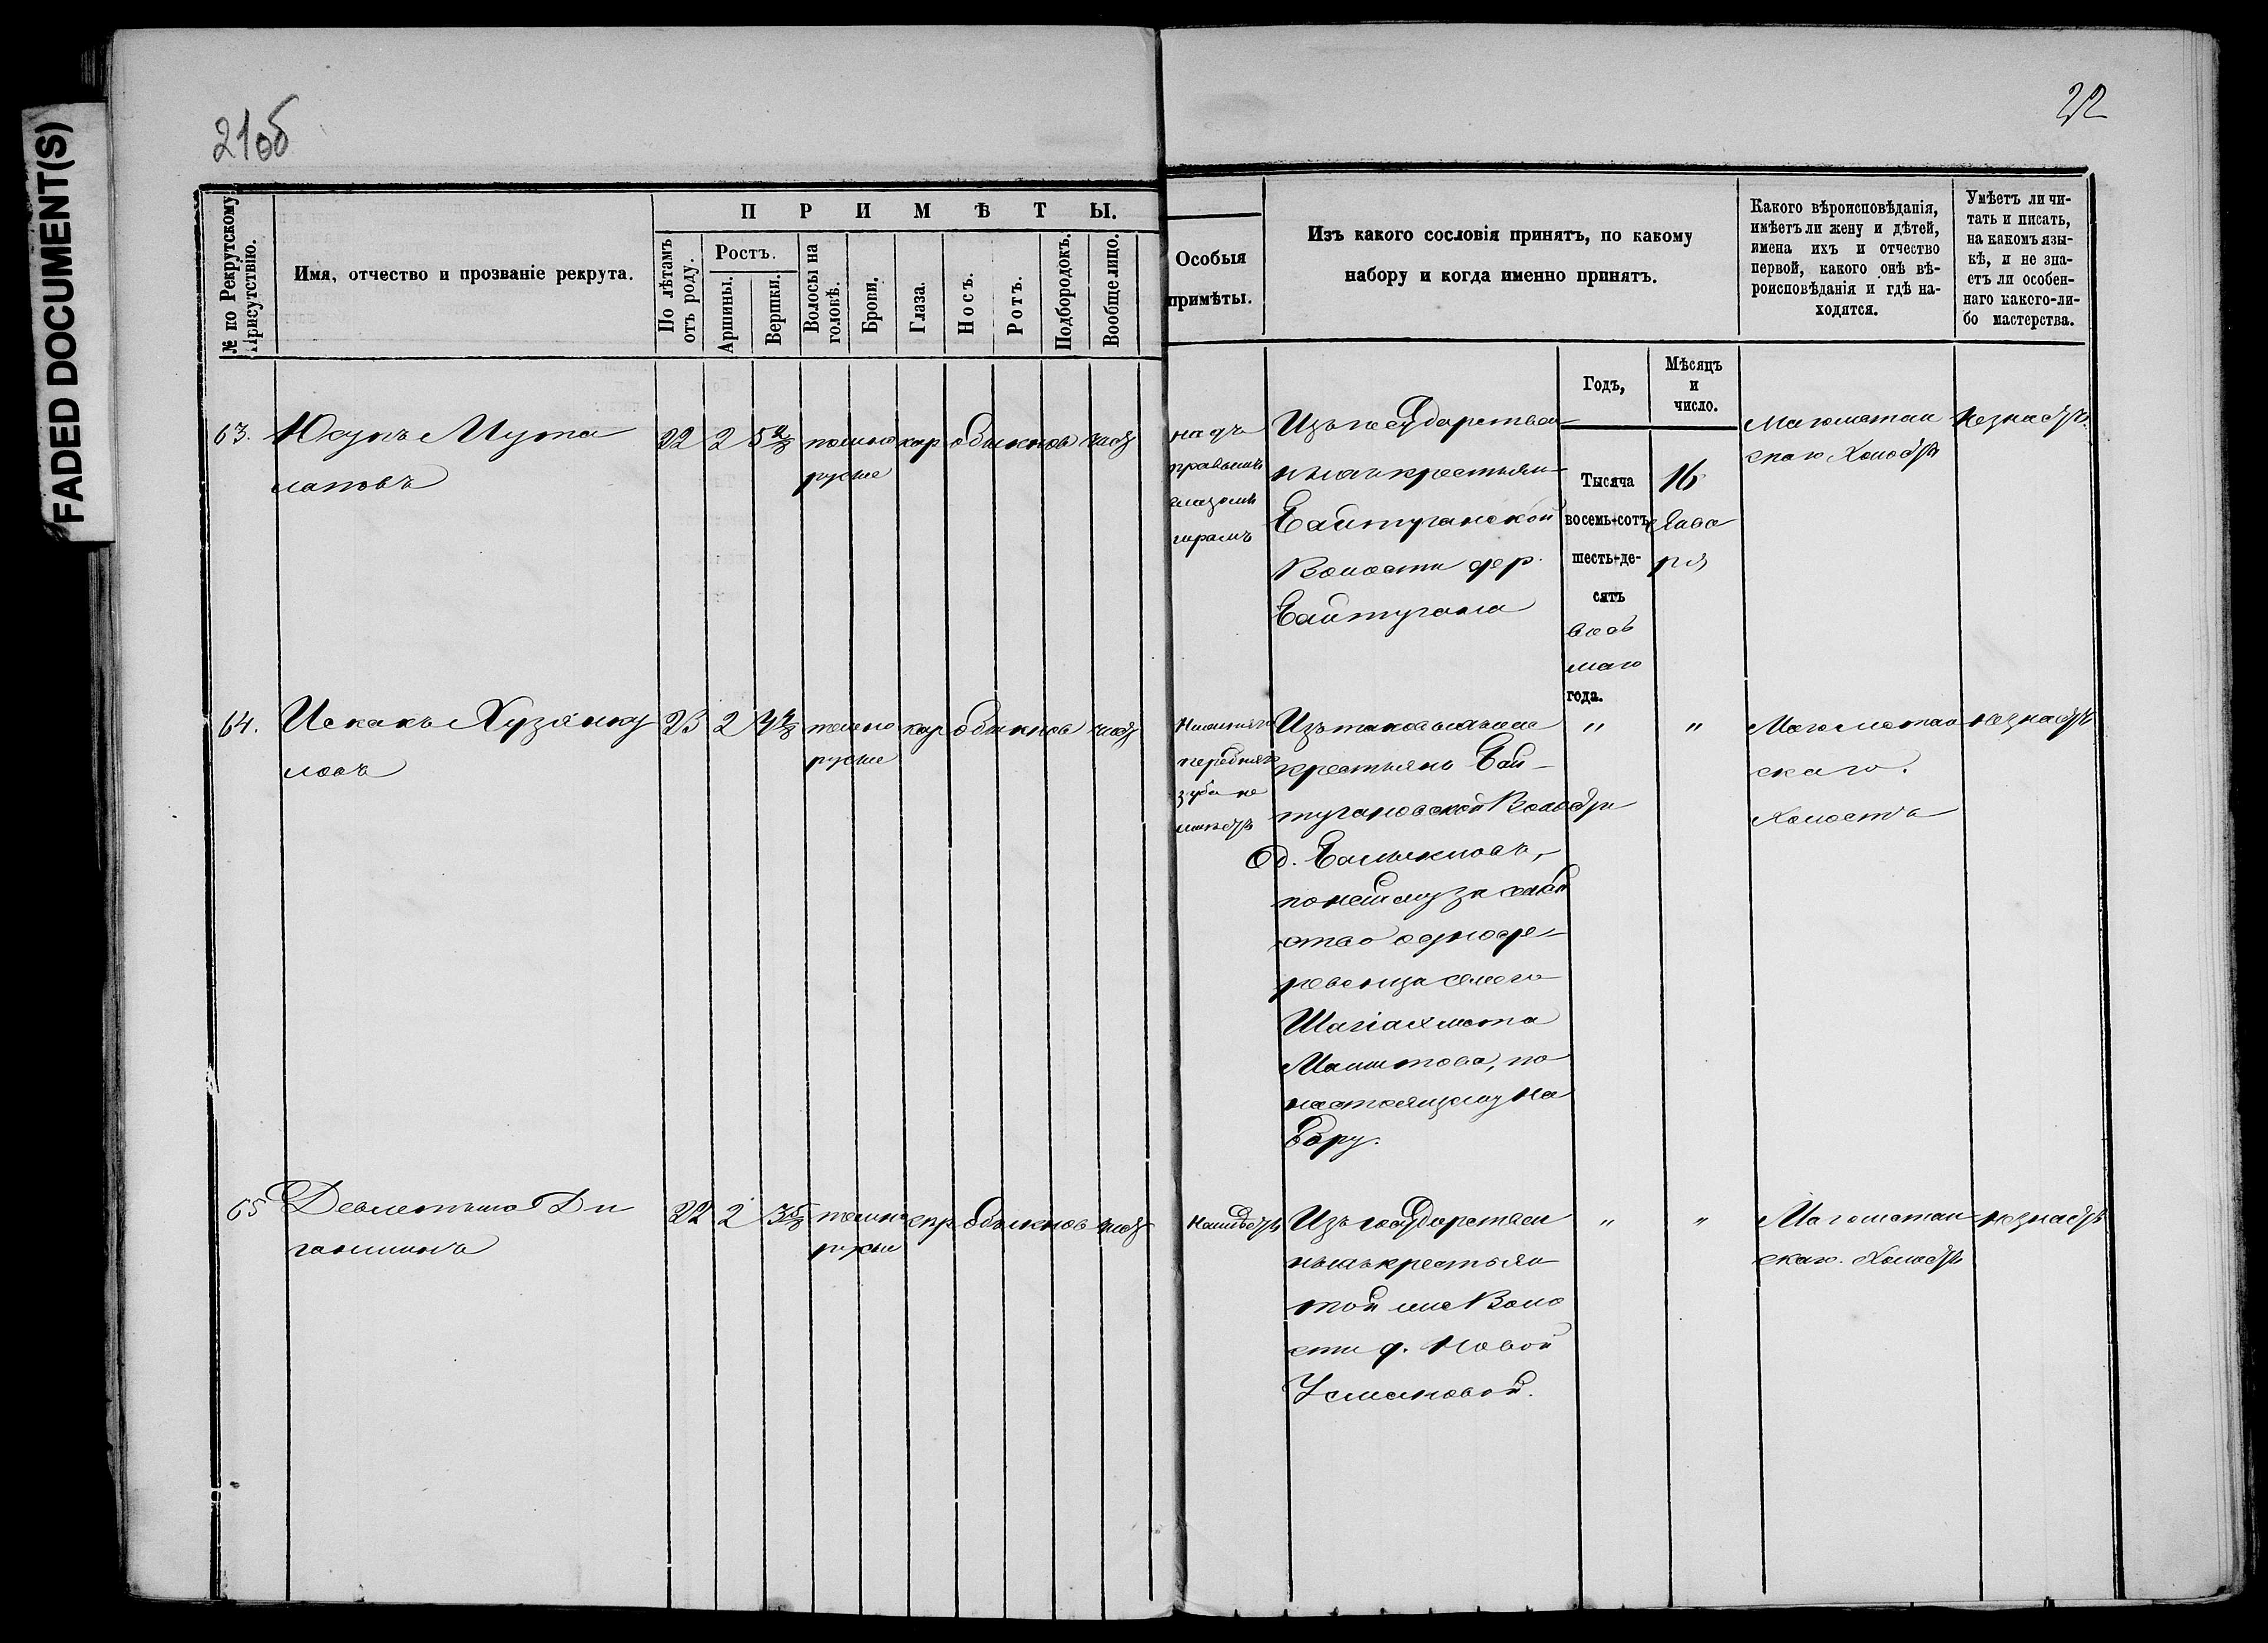 FADED DOCUMENT(S)
21об
22
№ по Рекрутскому Присутствію.
Имя, отчество и прозваніе рекрута.
ПРИМѢТЫ.
По лѣтамъ отъ роду.
Ростъ.
Аршины.
Вершки.
Волосы на головѣ.
Брови,
Глаза.
Носъ.
Ротъ.
Подбородокъ.
Вообще лицо.
Особыя
примѣты.
Изъ какого сословія принятъ, по какому
набору и когда именно принятъ.
Какого вѣроисповѣданія,
имѣетъ ли жену и дѣтей,
имена ихъ и отчество
первой, какого онѣ вѣ-
роисповѣданія и гдѣ на-
ходятся.
Умѣетъ ли чи-
тать и писать,
на какомъ язы-
кѣ, и не зна-
етъ ли особен-
наго какого-ли-
бо мастерства.
Годъ,
Мѣсяцъ
и
число.
63.
22 2 5 темно кар обыкнов чист
русые
надъ
правымъ
глазомъ
шрамъ
Изъ государствен
ныхъ крестьян
Байтуганской
Волости дер.
Байтугана
Тысяча
восемь-сотъ
шесть-де-
сятъ
вось
маго
года.
16
Янва
ря
Магометан
скаго Холостъ
Незнаетъ
64.
Искакъ Хузянку
ловъ
23 2 4 темно кар обыкнов чист
русые
передняго
зуба не
имѣетъ
Изъ таковыхъ же
крестьянъ Бай
тугановской Волости
по найму за семей
ство одноде-
ревенца своего
Шагіахмета
по
настоящему на
бору.
" "
Магометан
скаго.
Холостъ
незнаетъ
65
Девлетша Ди
ганшинъ
22 2 3 темно сѣр обыкнов чист
русые
Неимѣетъ
Изъ государствен
ныхъ крестьян
той же Воло
сти д. Новой
Усмановой.
" "
Магометан
скаго. Холостъ
незнаетъ